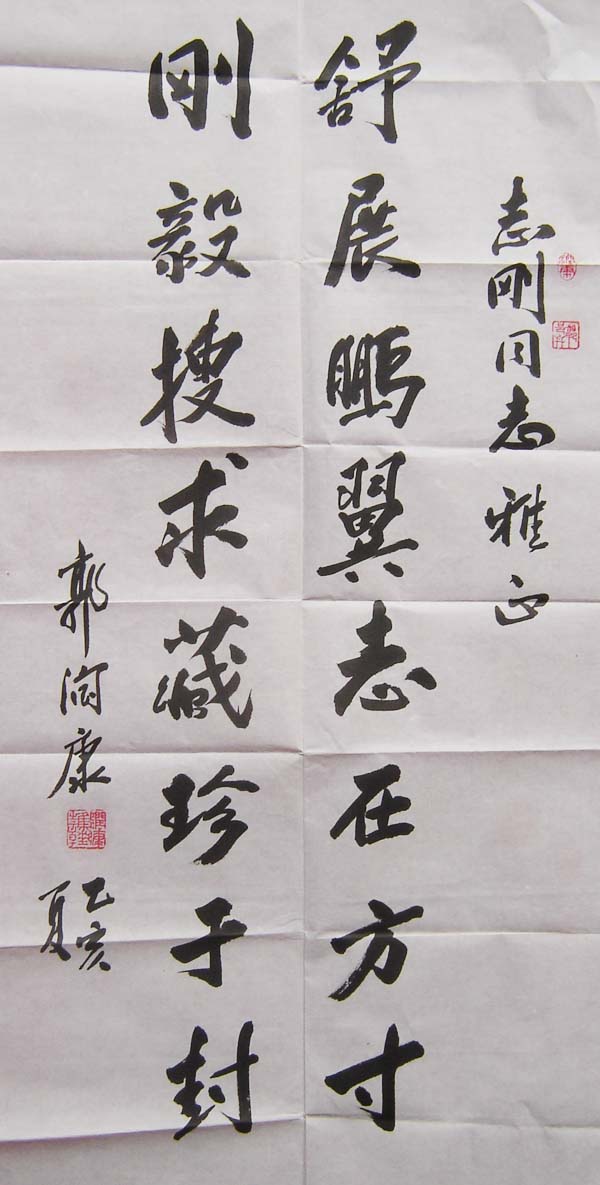 志刚同志雅正
舒展鹏翼志在方寸
刚毅搜求藏珍于封
郭润康
乙亥
夏